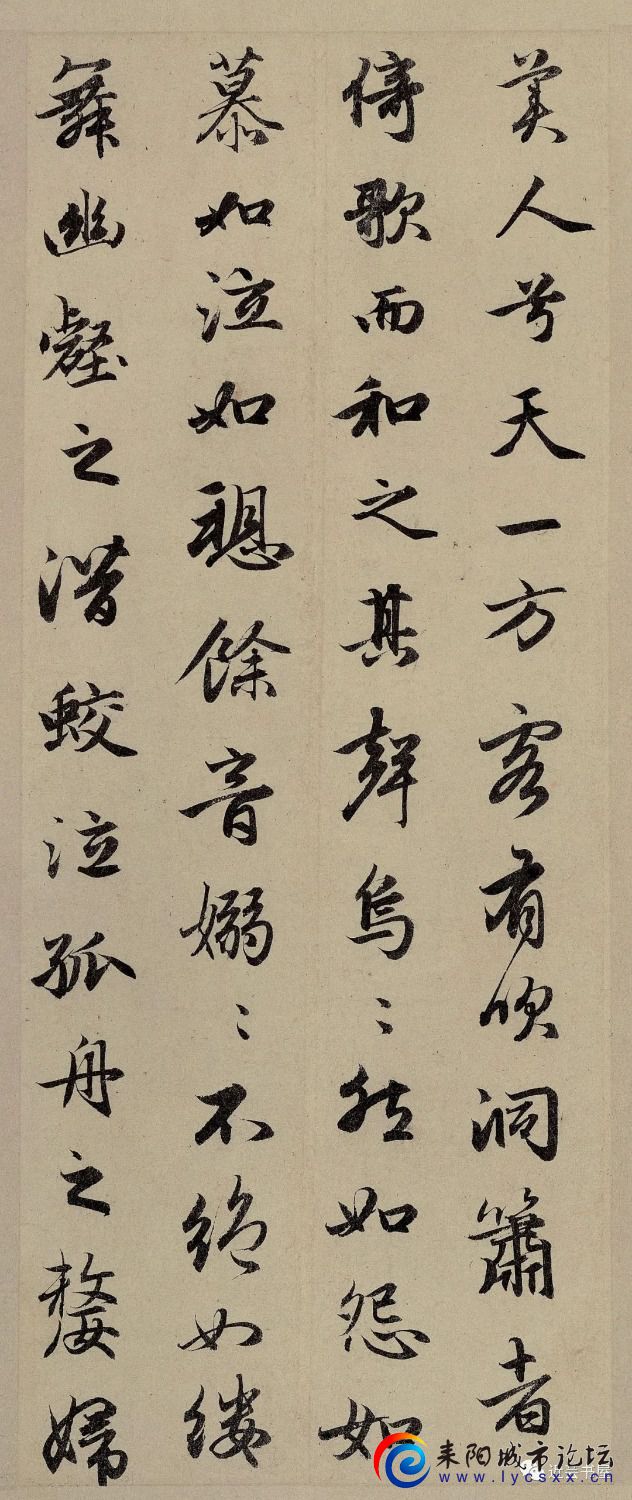 美人兮天一方客有吹洞簫者
倚歌而和之其聲烏〻然如怨如
慕如泣如餘音嫋〻不絕如縷
舞幽壑之潛蛟泣孤舟之嫠婦
耒阳城市论坛
www.lycsxx.cn